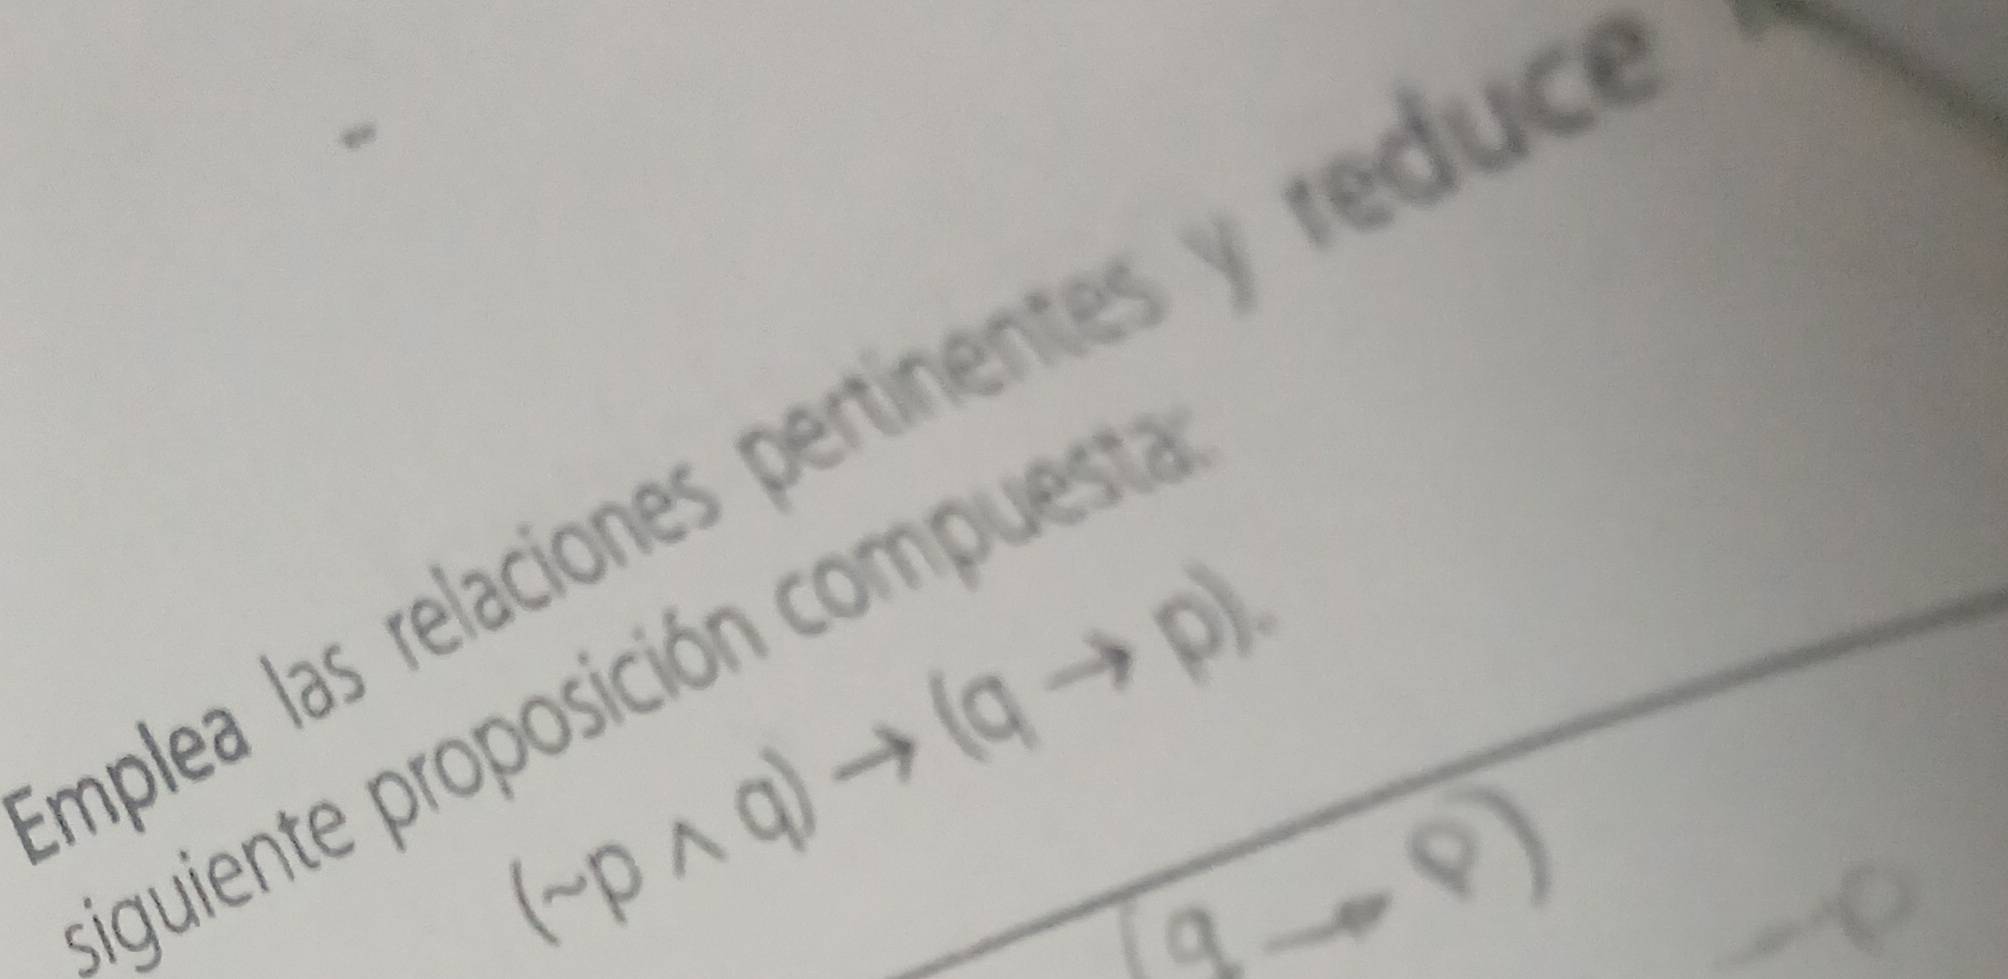 Emplea las relaciones pertinentes y reduce
siguiente proposición compuesta:
(~p ∧ q) → (q → p).
(q → p)